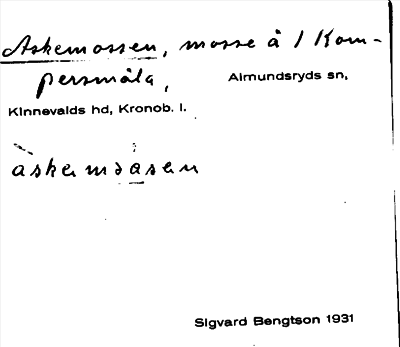 Askemossen, mosse å 1 Kom-
persmåla,
Almundsryds sn,
Kinnevalds hd, Kronob. l.
askamɔasen
Sigvard Bengtson 1931